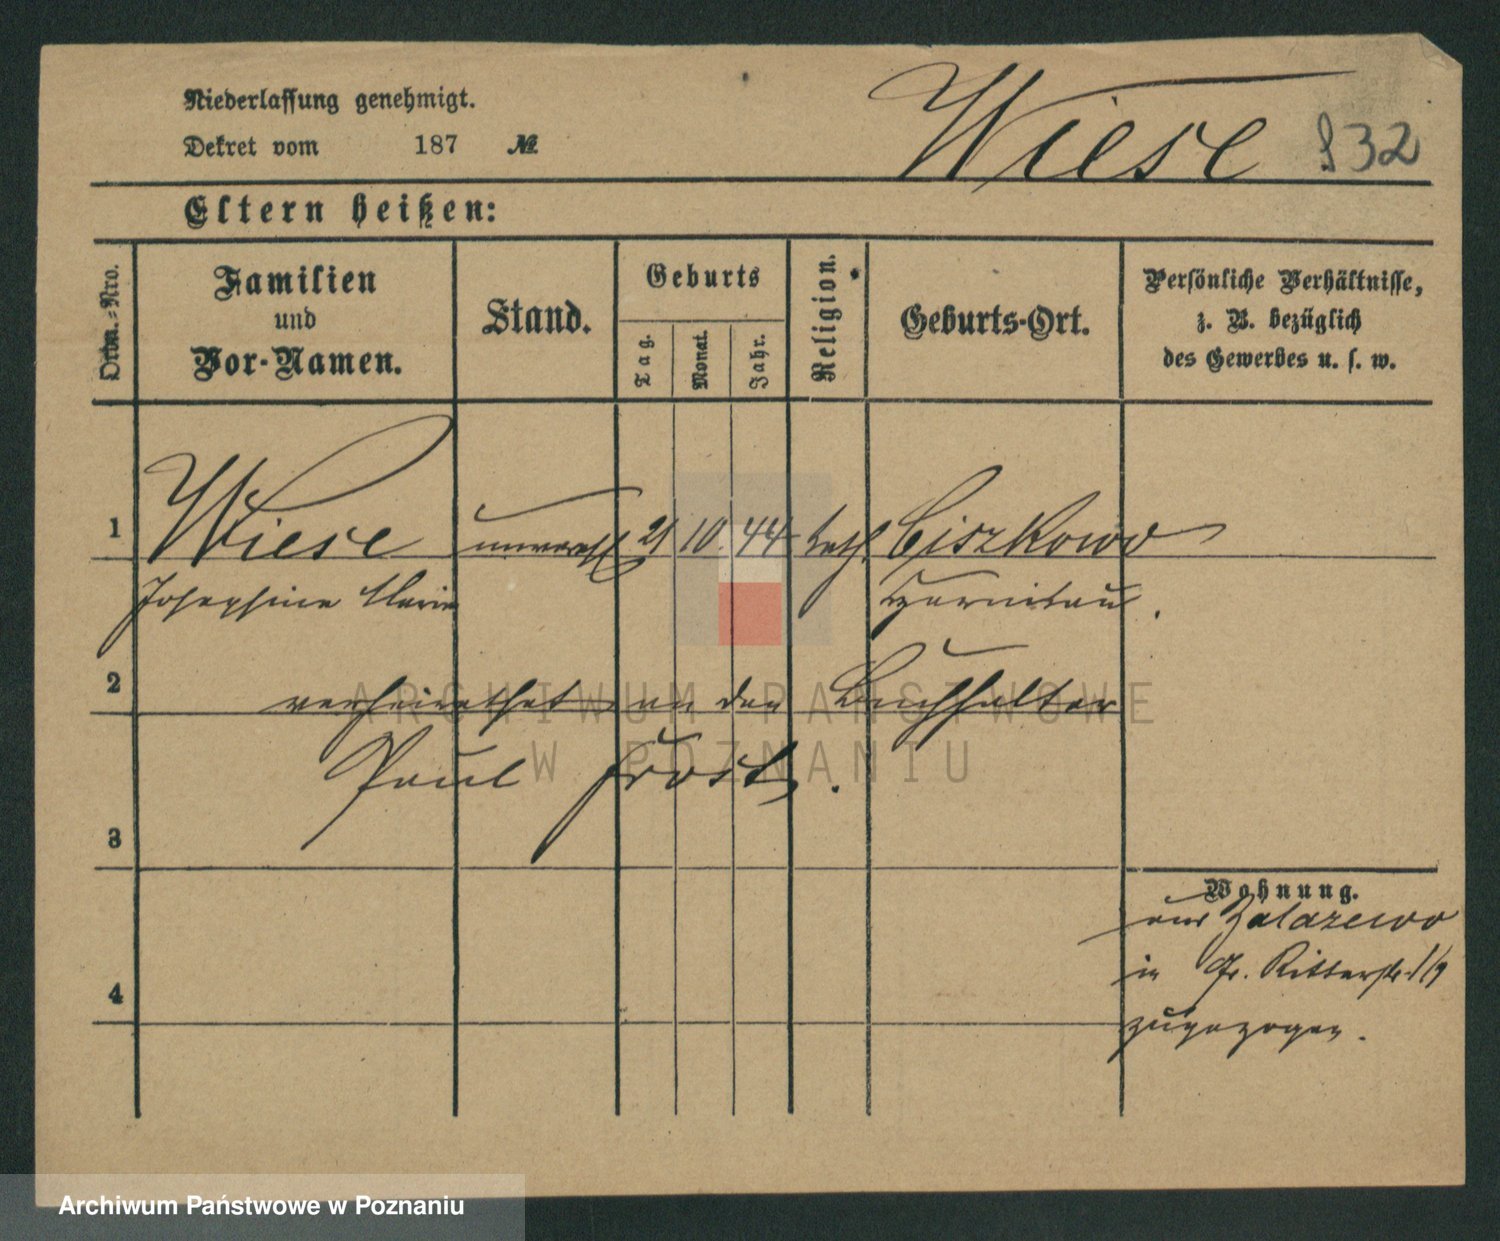 Niederlassung genehmigt.
Wiese 832
Dekret vom 187 №
Eltern heißen:
Ordn.-Nro.
Familien
und
Vor-Namen.
Stand.
Geburts
Tag.
Monat.
Jahr.
Religion.
Geburts-Ort.
Persönliche Verhältnisse,
z. B. bezüglich
des Gewerbes u. s. w.
1 Wiese unverehl 21 10. 44 kath. Ciszkowo
Josephine Marie Czarnikau.
2 verheirathet an den Buchhalter
Paul Frost.
3
Wohnung.
aus Zalazewo
in Gr. Ritterstr.
zugezogen.
4
ARCHIWUM PAŃSTWOWE
W POZNANIU
Archiwum Państwowe w Poznaniu